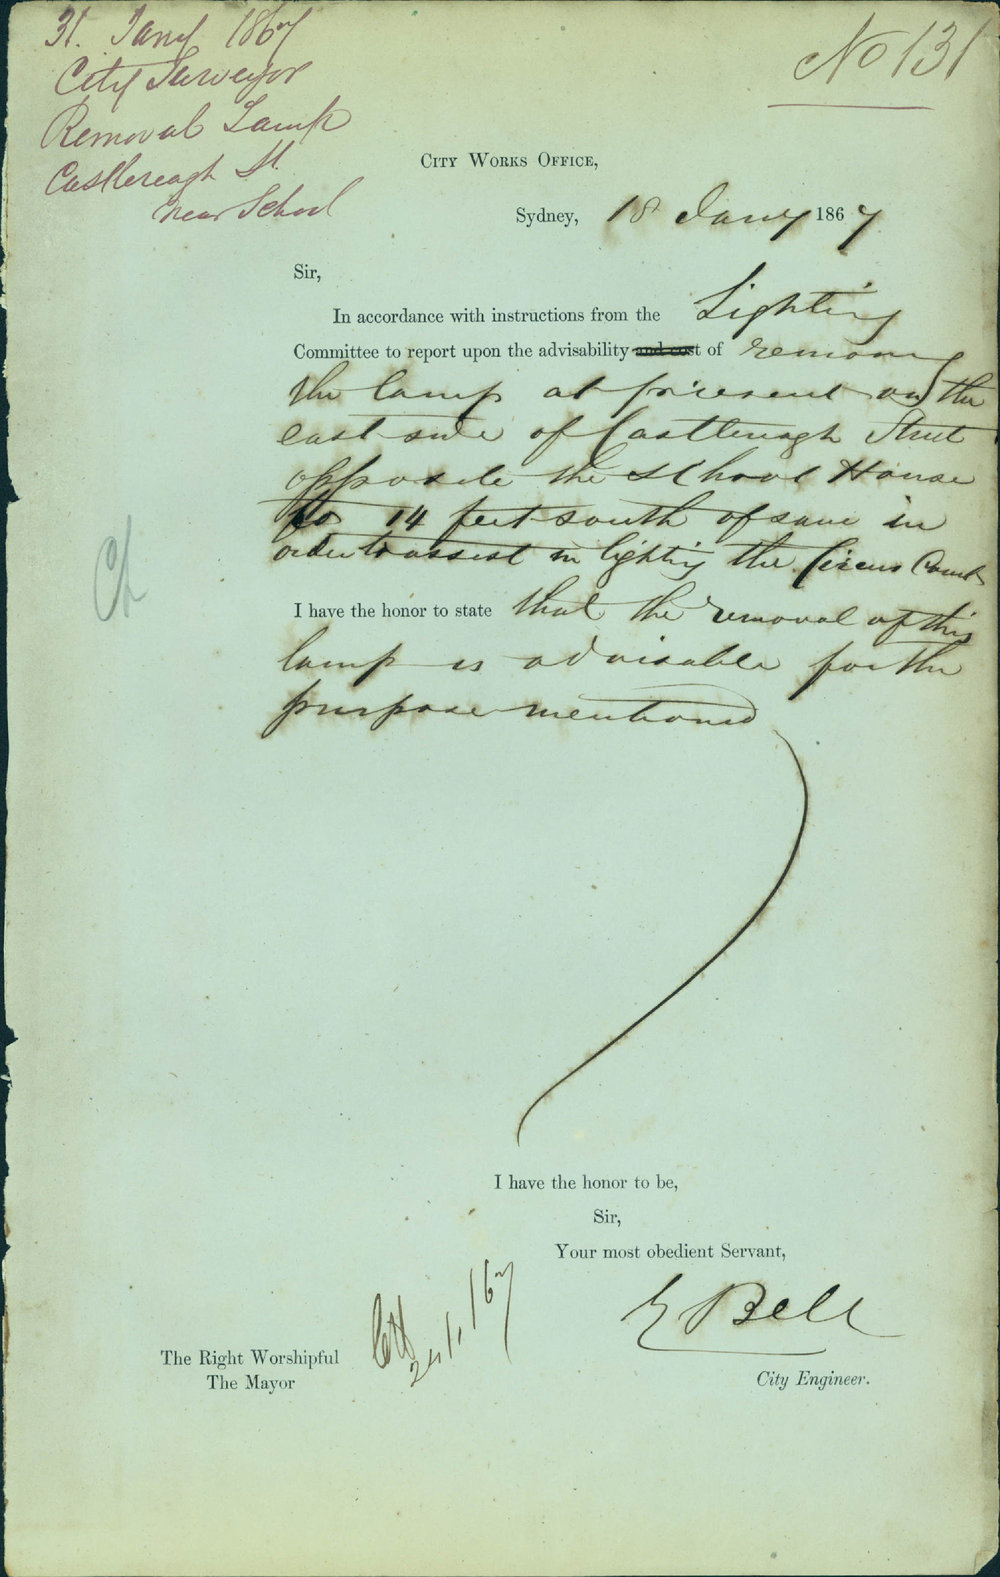 31. Jany 1867
City Surveyor
Removal Lamp
Castlereagh St.
near School
No 131
City Works Office,
Sydney, 18 Jany 1867
Sir,
In accordance with instructions from the Lighting
Committee to report upon the advisability and cost of removing
the lamp at present on the
east side of Castlereagh Street
opposite the School House
to 14 feet south of same in
order to assist in lighting the Circus Court
I have the honor to state that the removal of this
lamp is advisable for the
purpose mentioned
I have the honor to be,
Sir,
Your most obedient Servant,
E Bell
City Engineer.
The Right Worshipful
The Mayor